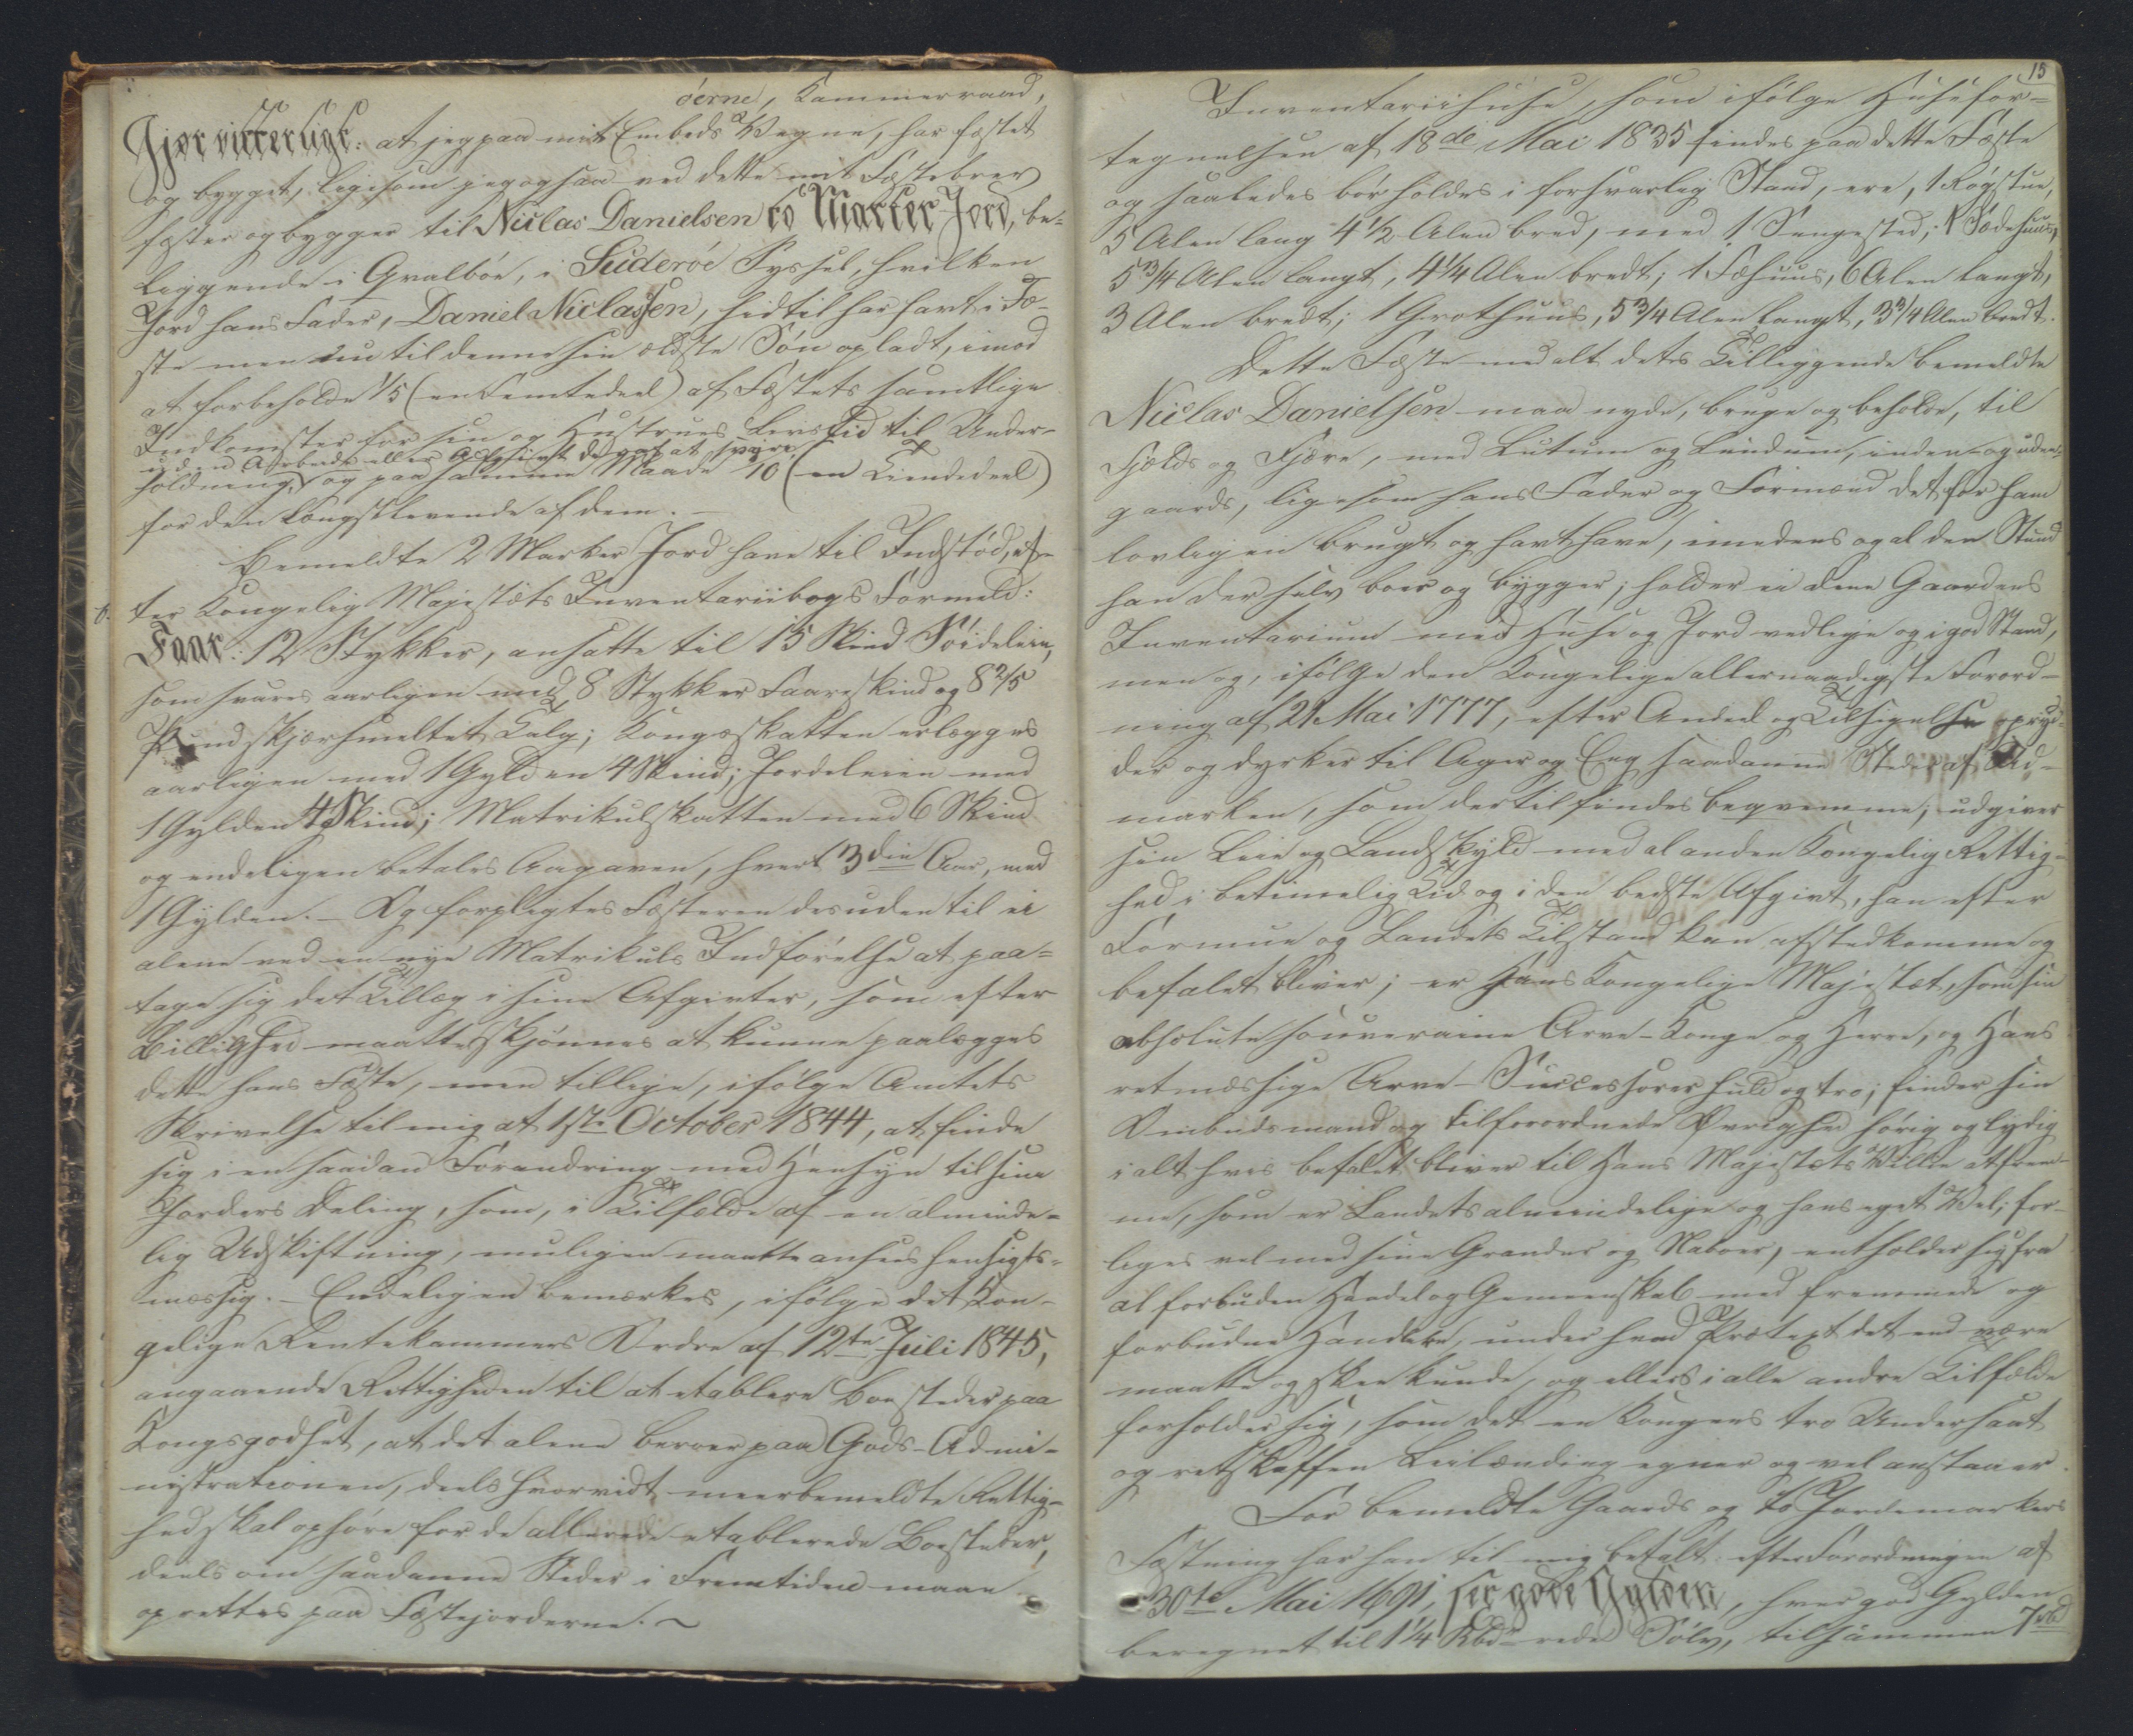 öerne, Kammerraad,
Gjör vitterligt: at jeg paa mit Embeds Vegne, har fæstet
og bygget, ligesom jeg ogsaa ved dette mit Fæstebrev
fæster og bygger til Niclas Danielsen to Marker Jord, be-
liggende i Qvalböe, i Suderöe Syssel, hvilken
Jord hans Fader, Daniel Niclassen, hidtil har havt i Fæ-
ste men nu til denne sin ældste Sön opladt, imod
at forbeholde 1/5 (en Femtedeel) af Fæstets samtlige
Indkomster for sin og Hustrues Levetid til Under-
uden Arbeide eller Afgivt deraf at svare
holdning, og paa samme Maade 1/10 (en Tiendedeel)
for den Længstlevende af dem. –
Bemeldte 2 Marker Jord have til Indstöd, ef-
ter Kongelig Majestæts Inventariibogs Formeld:
Faar: 12 Stykker, ansatte til 15 Skind Söideleie,
som svares aarligen med 8 Stykker Faareskind og 8 2/5
Pund skjærsmeltet Talg; Kongeskatten erlægges
aarligen med 1 Gylden 4 Skind; Jordeleien med
1 Gylden 4 Skind; Matrikulskatten med 6 Skind
og endeligen betales Aagaven, hvert 3die Aar, med
1 Gylden. – Og forpligtes Fæsteren desuden til ei
alene ved en nye Matrikuls Indförelse at paa=
tage sig det Tillæg i sine Afgivter, som efter
Billighed maatte skjönnes at kunne paalægges
dette hans Fæste, men tillige, ifölge Amtets
Skrivelse til mig at 1ste October 1844, at finde
sig i en saadan Forandring med Hensyn til sine
Jorders Deling, som, i Tilfælde af en alminde=
lig Udskiftning, muligen maatte ansees hensigts=
mæssig. – Endeligen bemærkes, ifölge det Kon-
gelige Rentekammers Ordre af 12te Juli 1845,
angaaende Rettigheden til at etablere Boesteder paa
Kongsgodset, at det alene beroer paa Gods-Admi-
nistrationen, deels hvorvidt meerbemeldte Rettig-
hed skal ophöre for de allerede etablerede Boesteder,
deels om saadanne Steder i Fremtiden maae
oprettes paa Fæstejorderne. ~
15
Inventariihuse, som ifölge Huusefor=
tegnelsen af 18de Mai 1835 findes paa dette Fæste
og saaledes bör holdes i forsvarlig Stand, ere, 1 Rögstue,
5 Alen lang 4 1/2 Alen bred, med 1 Sengested; 1 Sædehuus,
5 3/4 Alen langt, 4 1/4 Alen bredt; 1 Fæhuus, 6 Alen langt,
3 Alen bredt; 1 Grothuus, 5 3/4 Alen langt, 3 3/4 Alen bredt.
Dette Fæste med alt dets Tilliggende bemeldte
Niclas Danielsen maa nyde, bruge og beholde, til
Fjelds og Fjære, med Lutum og Lundum, inden- og uden-
gaards, ligesom hans Fader og Formænd det for ham
lovligen brugt og havt have, imedens og al den Stund
han der selv boer og bygger; holder ei alene Gaardens
Inventarium med Huse og Jord vedlige og i god Stand,
men og, ifölge den Kongelige allernaadigste Forord-
ning af 21 Mai 1777, efter Andeel og Tilsigelse opryd-
der og dyrker til Ager og Eng saadanne Steder af Ud-
marken, som dertil findes beqvemme; udgiver
sin Leie og Landskyld med al anden Kongelig Rettig-
hed i betimelig Tid og i den bedste Afgivt, han efter
Formue og Landets Tilstand kan afstedkomme og
befalet bliver; er Hans Kongelige Majestæt, som sin
absolute souveraine Arve-Konge og Herre, og Hans
retmæssige Arve-Successorer huld og tro; finder sin
Ombudsmand og tilforordnede Övrighed hörig og lydig
i alt hvis befalet bliver til Hans Majestæts Villie at frem-
me, som er Landets almindelige og hans eget Vel; for-
liges vel med sine Grander og Naboer, entholder sig fra
al forbuden Handel og Gemeenskab med fremmede og
forbudne Handlere, under hvad Prætext det end være
maatte og skee kunde, og ellers i alle andre Tilfælde
forholder sig, som det en Kongens tro Undersaat
og retskaffen Leilænding egner og vel anstaaer.
For bemeldte Gaards og to Jordemarkers
Fæstning har han til mig betalt efter Forordningen af
30te Mai 1691, sex gode Gylden, hver god Gylden
beregnet til 1 1/4 Rbd rede Sölv, tilsammen 7 rbd